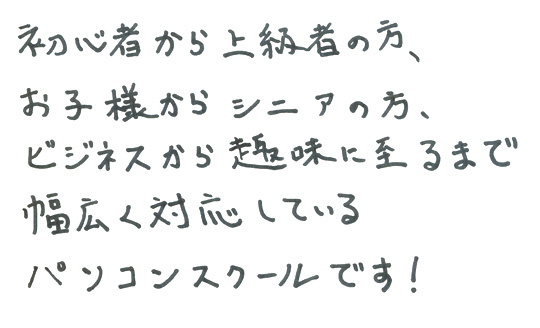 初心者から上級者の方、
お子様からシニアの方、
ビジネスから趣味に至るまで
幅広く対応している
パソコンスクールです!